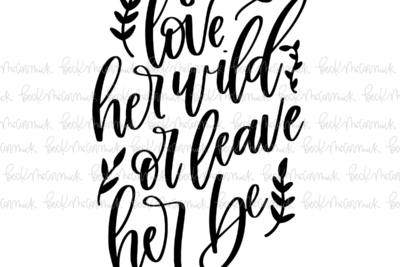 love
her wild
or leave
her be